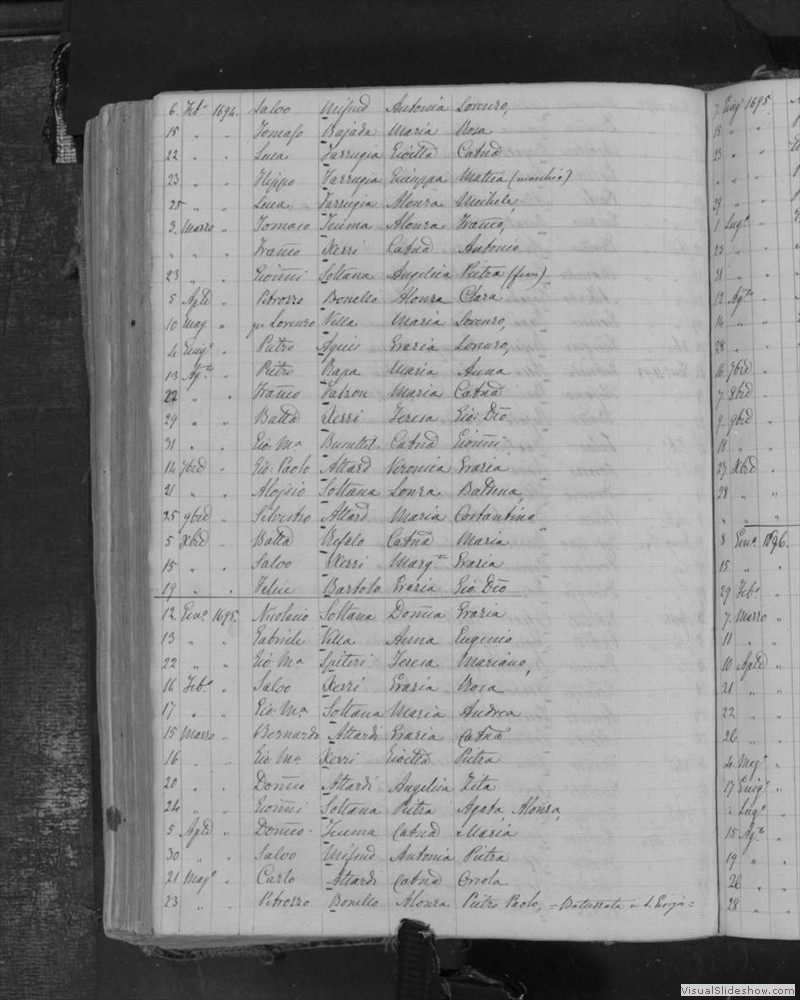 6. Feb° 1694. Salvo Mifsud Antonia Lorenzo,
15 " " Tomaso Bajada Maria Rosa
22 " " Luca Farrugia Gioitta Catnā
23 " " Filippo Farrugia Mattea (maschio)
25 " " Luca Farrugia Alonza Michele,
3. Marzo " Tomaso Teuma Alonza Franco,
" " " Franco Xerri Catnā Antonio
23 " " Gioñni Soltana Angelica Pietra
5 Aple " Petrozzo Bonello Alonza Clara
10 Mag " qm Lorenzo Villa Maria Lorenzo,
4 Giugo " Pietro Agius Grazia Lorenzo,
13 Agto " Pietro Bapa Maria Anna
22 " " Franco Maria Catnā
29 " " Batta Xerri Teresa Gio: Dio
31 " " Gio: Ma Catnā Gioñni
14 7bre " Gio: Paolo Attard Veronica Grazia
21 " " Aloysio Soltana Lonza
25 9bre " Silvestro Attard Maria Costantino
5 Xbre " Batta Refalo Catnā Maria
15 " " Salvo Xerri Margta Grazia
19 " " Felice Bartolo Grazia Gio: Dio
12. Gen° 1695. Nicolaio Soltana Domca Grazia
13 " " Gabriele Villa Anna Eugenio
22 " " Gio: Ma Spiteri Teresa Mariano,
16 Feb° " Salvo Xerri Grazia Rosa
17 " " Gio: Ma Soltana Maria Andrea
15 Marzo " Bernardo Attardi Grazia Catnā
16 " " Gio: Ma Xerri Gioitta Pietra
20 " " Domco Attardi Angelica Zita
24 " " Gioñni Soltana Pietra Agata Alonza,
5 Aple " Domco Teuma Catnā Maria
30 " " Salvo Mifsud Antonia Pietra
21 Mag° " Carlo Attardi Catnā
23 " " Petrozzo Bonello Alonza Pietro Paolo,
7. Giug° 1695
13 " "
23 " "
" " "
29 " "
1 Lug° "
23 " "
31 " "
12 Agto "
14 " "
28 " "
16 7bre "
7 8bre "
9 9bre "
18 "
27 Xbre "
28 " "
" " "
8 Gen° 1696.
15 " "
29 Feb° "
7. Marzo "
11 " "
10 Aple "
21 " "
22 " "
26 " "
4 Mag° "
17 Giug° "
" Lug° "
15 Agto "
19 " "
26 " "
28 " "
VisualSlideshow.com